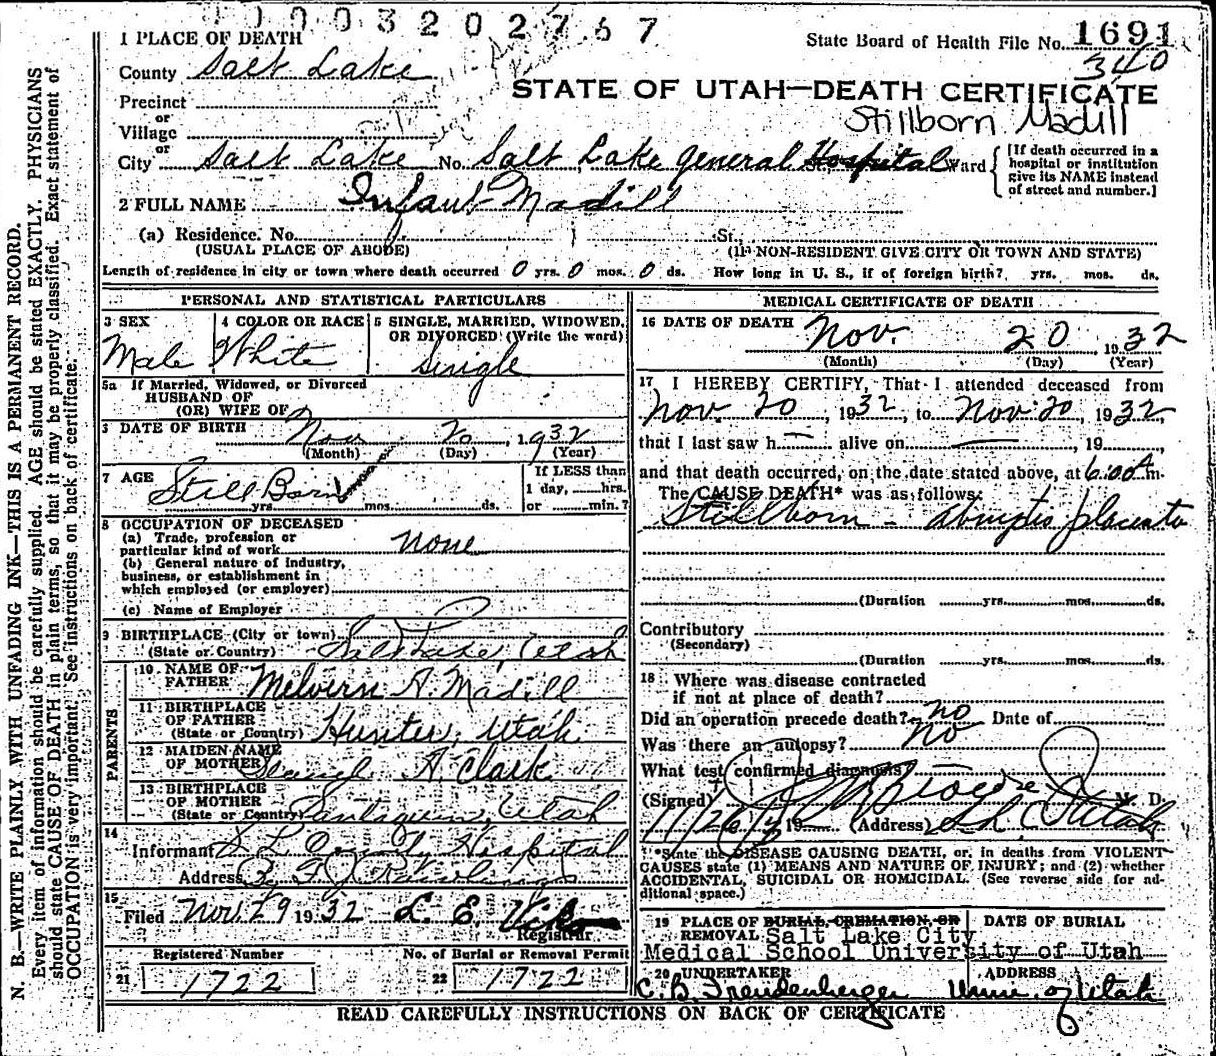 003202767
1 PLACE OF DEATH
State Board of Health File No. 1691
340
County Salt Lake
STATE OF UTAH—DEATH CERTIFICATE
Precinct
or
Village
Stillborn Madill
or
City Salt Lake No. Salt Lake General Hospital St., Ward
[If death occurred in a hospital or institution give its NAME instead of street and number.]
2 FULL NAME Infant Madill
(a) Residence. No. St.,
(USUAL PLACE OF ABODE) (If NON-RESIDENT GIVE CITY OR TOWN AND STATE)
Length of residence in city or town where death occurred 0 yrs. 0 mos. 0 ds. How long in U. S., if of foreign birth? yrs. mos. ds.
PERSONAL AND STATISTICAL PARTICULARS
3 SEX
Male
4 COLOR OR RACE
White
5 SINGLE, MARRIED, WIDOWED, OR DIVORCED (Write the word)
Single
5a If Married, Widowed, or Divorced
HUSBAND OF
(OR) WIFE OF
DATE OF BIRTH Nov 20, 1932
(Month) (Day) (Year)
7 AGE Still Born
yrs. mos. ds.
If LESS than
1 day, hrs.
or min.?
8 OCCUPATION OF DECEASED
(a) Trade, profession or
particular kind of work none
(b) General nature of industry,
business, or establishment in
which employed (or employer)
(c) Name of Employer
9 BIRTHPLACE (City or town)
(State or Country) Salt Lake, Utah
PARENTS
10 NAME OF
FATHER Melvirn A. Madill
11 BIRTHPLACE
OF FATHER
(State or Country) Hunter, Utah
12 MAIDEN NAME
OF MOTHER A. Clark
13 BIRTHPLACE
OF MOTHER
(State or Country) Santaquin, Utah
14
Informant S L County Hospital
Address
15
Filed Nov. 29 1932 L. E.
Registrar
Registered Number
21 1722
No. of Burial or Removal Permit
22 1722
MEDICAL CERTIFICATE OF DEATH
16 DATE OF DEATH Nov. 20 1932
(Month) (Day) (Year)
17 I HEREBY CERTIFY, That I attended deceased from
Nov 20, 1932, to Nov. 20, 1932
that I last saw h— alive on —, 19
and that death occurred, on the date stated above, at 6:00A m.
The CAUSE DEATH* was as follows:
Stillborn - abruptio placenta
(Duration yrs. mos. ds.
Contributory
(Secondary)
(Duration yrs. mos. ds.
18 Where was disease contracted
if not at place of death?
Did an operation precede death? no Date of
Was there an autopsy? no
What test confirmed diagnosis?
(Signed) M. D.
11/26/ 19 (Address) S L C Utah
*State the DISEASE CAUSING DEATH, or, in deaths from VIOLENT
CAUSES state (1) MEANS AND NATURE OF INJURY; and (2) whether
ACCIDENTAL, SUICIDAL OR HOMICIDAL. (See reverse side for additional space.)
19 PLACE OF BURIAL, CREMATION, OR
REMOVAL Salt Lake City
DATE OF BURIAL
Medical School University of Utah
20 UNDERTAKER
C. B. Freudenberger
ADDRESS
Univ. of Utah
READ CAREFULLY INSTRUCTIONS ON BACK OF CERTIFICATE
N. B.—WRITE PLAINLY WITH UNFADING INK—THIS IS A PERMANENT RECORD.
Every item of information should be carefully supplied. AGE should be stated EXACTLY. PHYSICIANS
should state CAUSE OF DEATH in plain terms, so that it may be properly classified. Exact statement of
OCCUPATION is very important. See instructions on back of certificate.